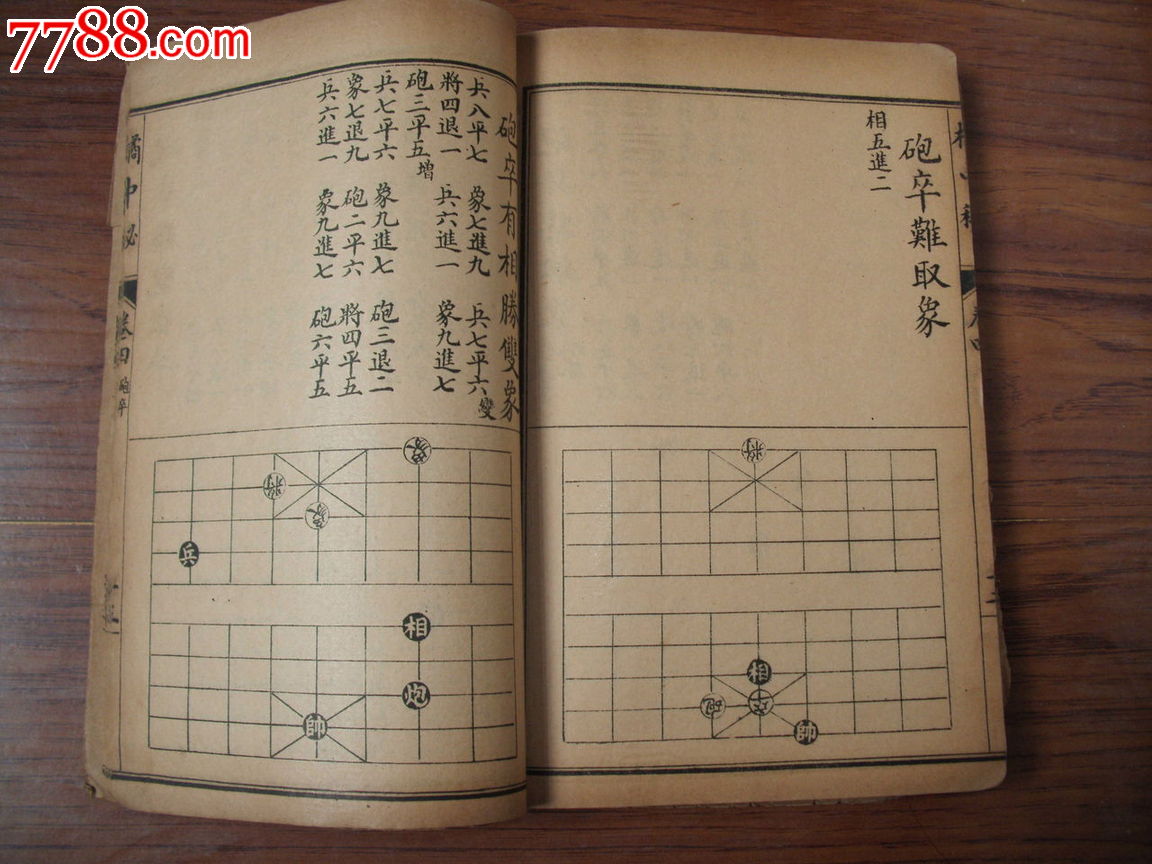 7788.com
砲卒難取象
相五進二
將
相
砲 卒
帥
砲卒有相勝雙象
兵八平七 象七進九 兵七平六變
將四退一 兵六進一 象九進七
砲三平五增
兵七平六 象九進七 砲三退二
象七退九 砲二平六 將四平五
兵六進一 象九進七 砲六平五
象
將
象
兵
相
炮
帥
橘中秘 卷四 砲卒